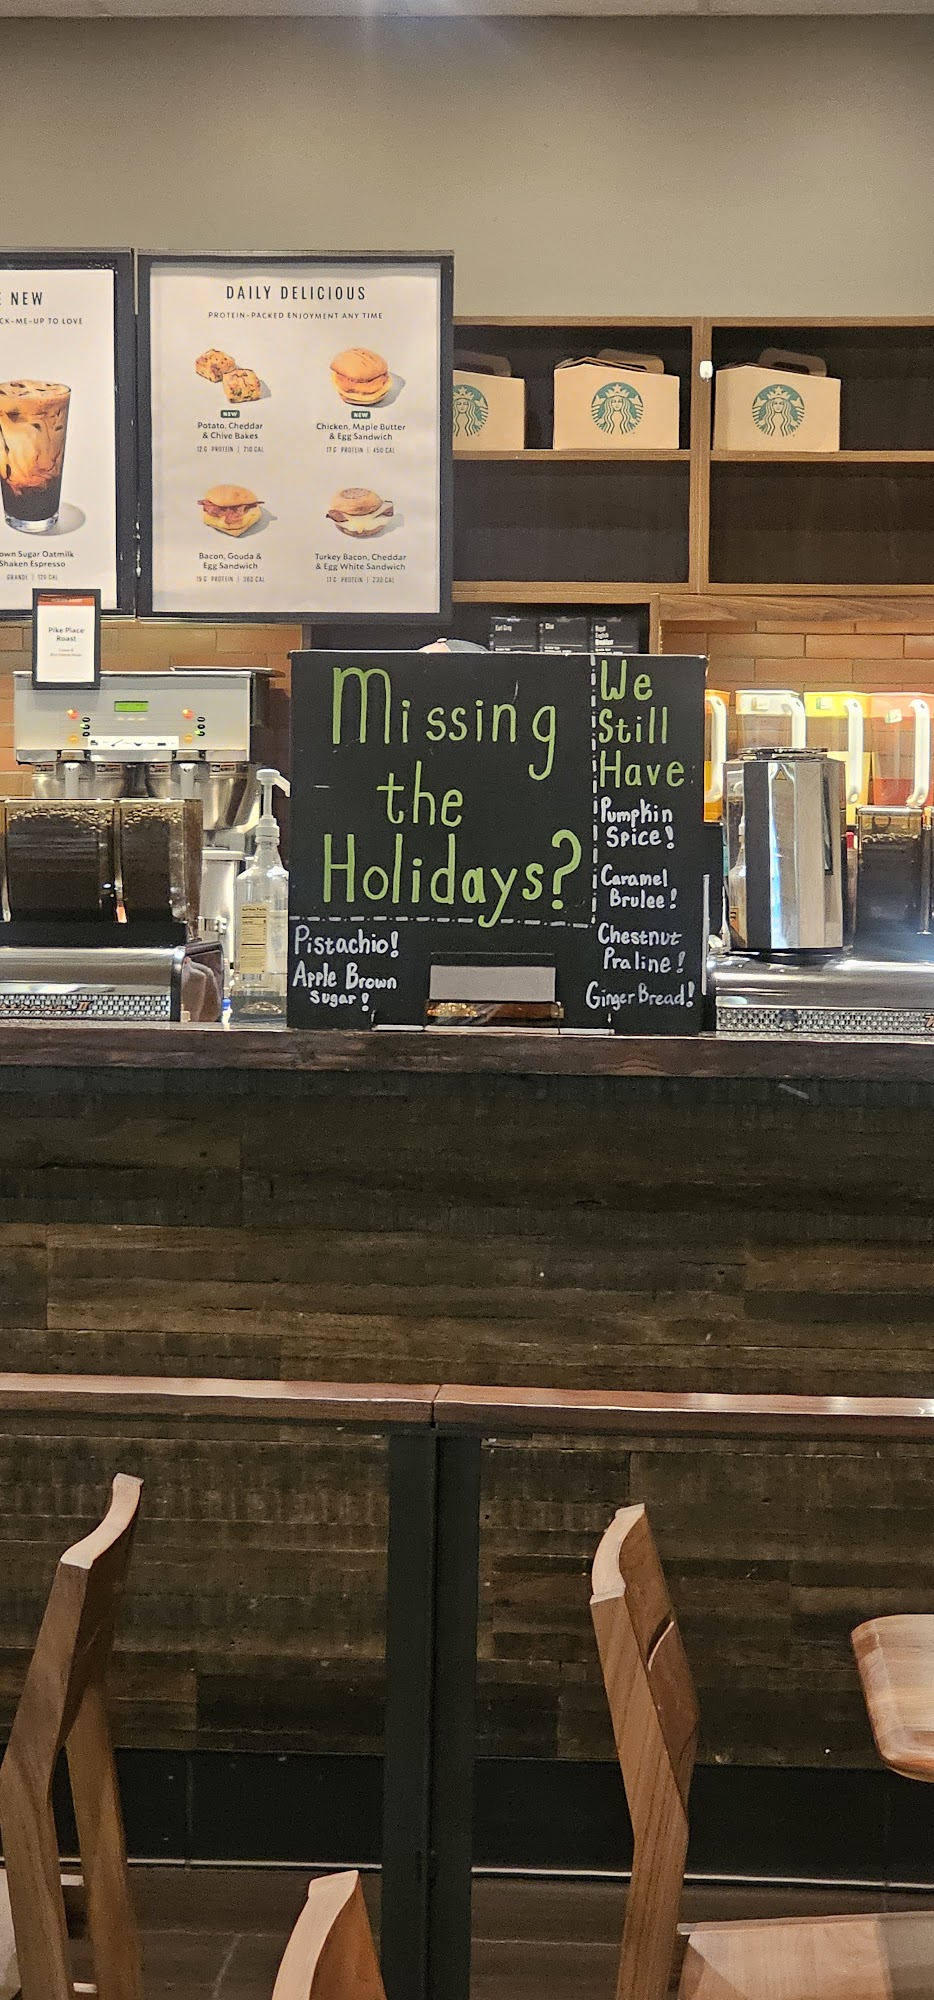 NEW
CK-ME-UP TO LOVE
own Sugar Oatmilk
Shaken Espresso
GRANDE | 120 CAL
DAILY DELICIOUS
PROTEIN-PACKED ENJOYMENT ANY TIME
NEW
Potato, Cheddar
& Chive Bakes
12 G PROTEIN | 210 CAL
NEW
Chicken, Maple Butter
& Egg Sandwich
17 G PROTEIN | 450 CAL
Bacon, Gouda &
Egg Sandwich
19 G PROTEIN | 360 CAL
Turkey Bacon, Cheddar
& Egg White Sandwich
17 G PROTEIN | 230 CAL
Pike Place
Roast
Earl Grey
Chai
Royal
English
Breakfast
Missing
the
Holidays?
We
Still
Have
Pumpkin
Spice!
Caramel
Brulee!
Chestnut
Praline!
GingerBread!
Pistachio!
Apple Brown
Sugar!